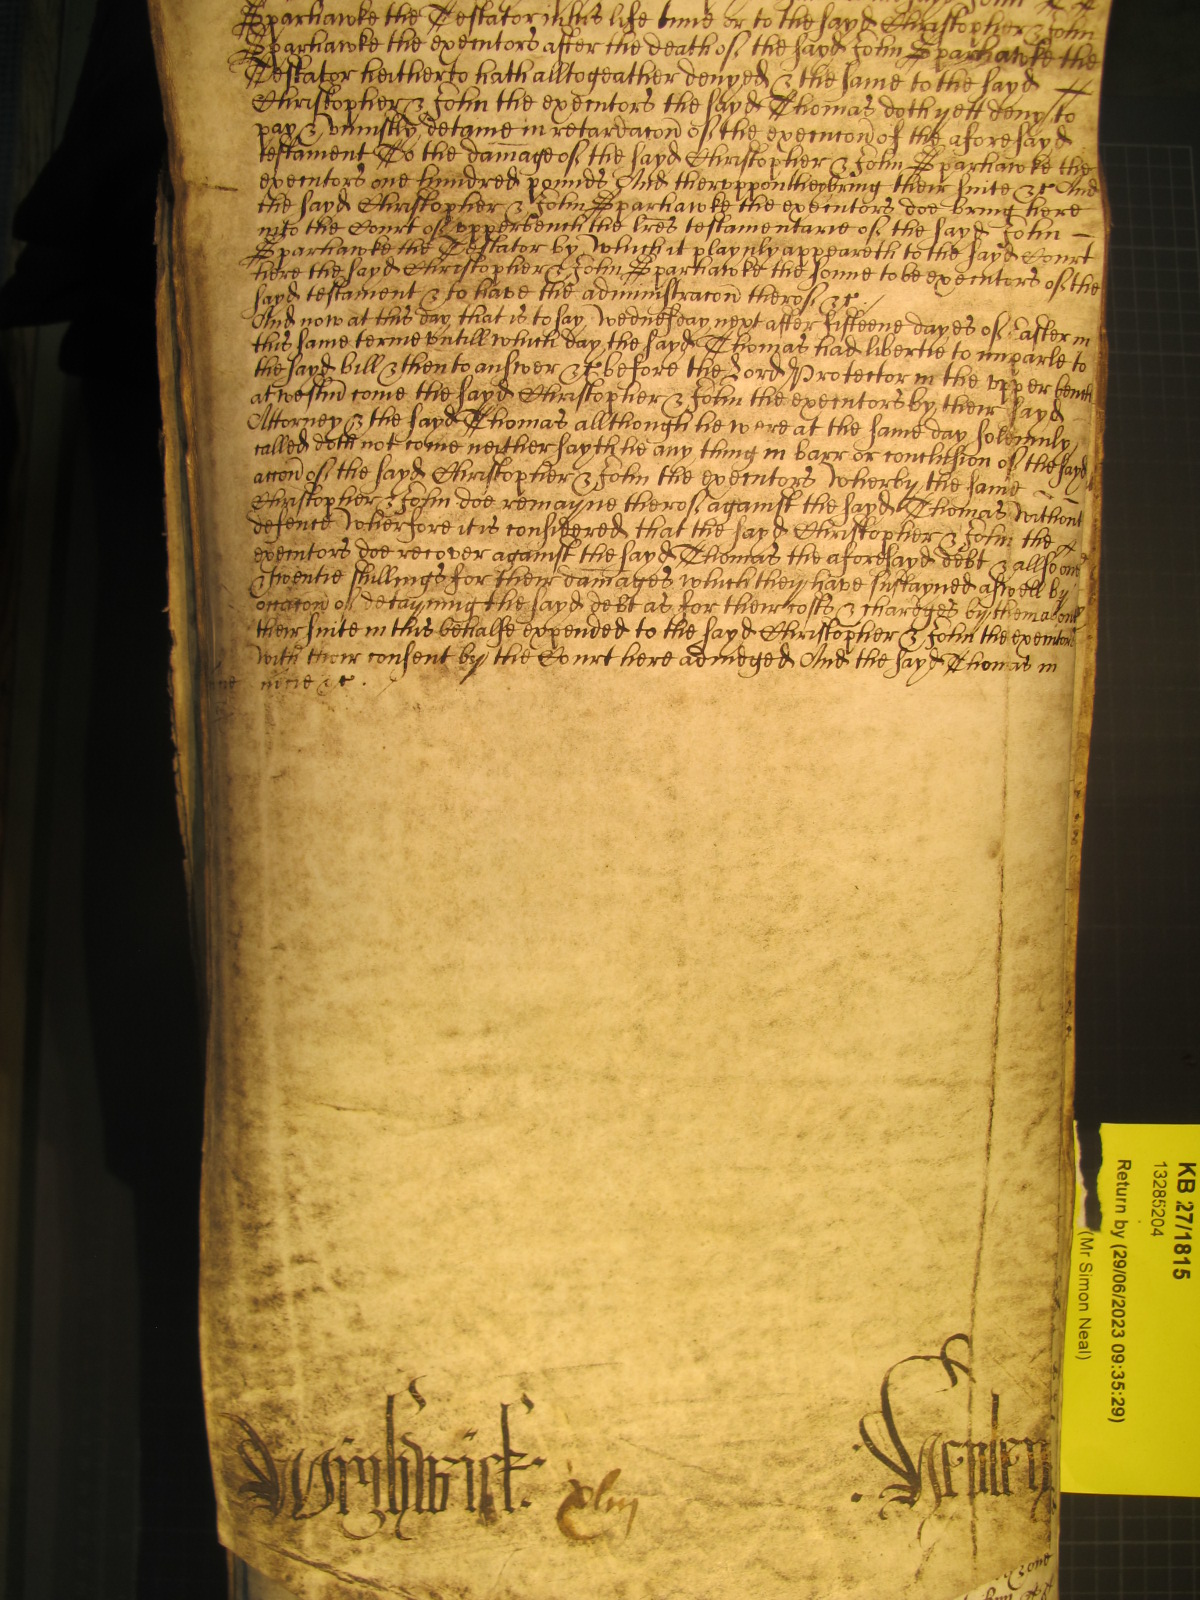 Sparhawke the Testator in his life time or to the sayd Christopher & John
Sparhawke the executors after the death of the sayd John Sparhawke the
Testator heitherto hath alltogeather denyed & the same to the sayd
Christopher & John the executors the sayd Thomas doth yett deny to
pay & uniustly detaine in retardacon of the execucon of the aforesayd
testament To the damage of the sayd Christopher & John Sparhawke the
executors one hundred pounds And theruppon they bring their suite &c And
the sayd Christopher & John Sparhawke the executors doe bring here
into the Court of upper bench the lres testamentarie of the sayd John
Sparhawke the Testator by which it playnly appeareth to the sayd Court
here the sayd Christopher & John Sparhawke the sonne to be executors of the
sayd testament & to have the administracon therof &c.
And now at this day that is to say Wednesday next after fifteene dayes of Easter in
this same terme untill which day the sayd Thomas had libertie to imparle to
the sayd bill & then to answer &c before the Lord Protector in the upper bench
at westm come the sayd Christopher & John the executors by their sayd
Attorney & the sayd Thomas allthough he were at the same day solemnly
called doth not come neither sayth he any thing in barr or conclusion of the sayd
accon of the sayd Christopher & John the executors Wherby the same
Christopher & John doe remayne therof against the sayd Thomas without
defence Wherfore it is considered that the sayd Christopher & John the
executors doe recover against the sayd Thomas the aforesayd debt & allso one
& twentie shillings for their damages which they have sustayned aswell by
occacon of detayning the sayd debt as for their costs & chardges by them about
their suite in this behalfe expended to the sayd Christopher & John the executors
with their consent by the Court here adiudged And the sayd Thomas in
mcie &c.
Wightwick
xliij
Henley
KB 27/1815
13285204
Return by (29/06/2023 09:35:29)
(Mr Simon Neal)